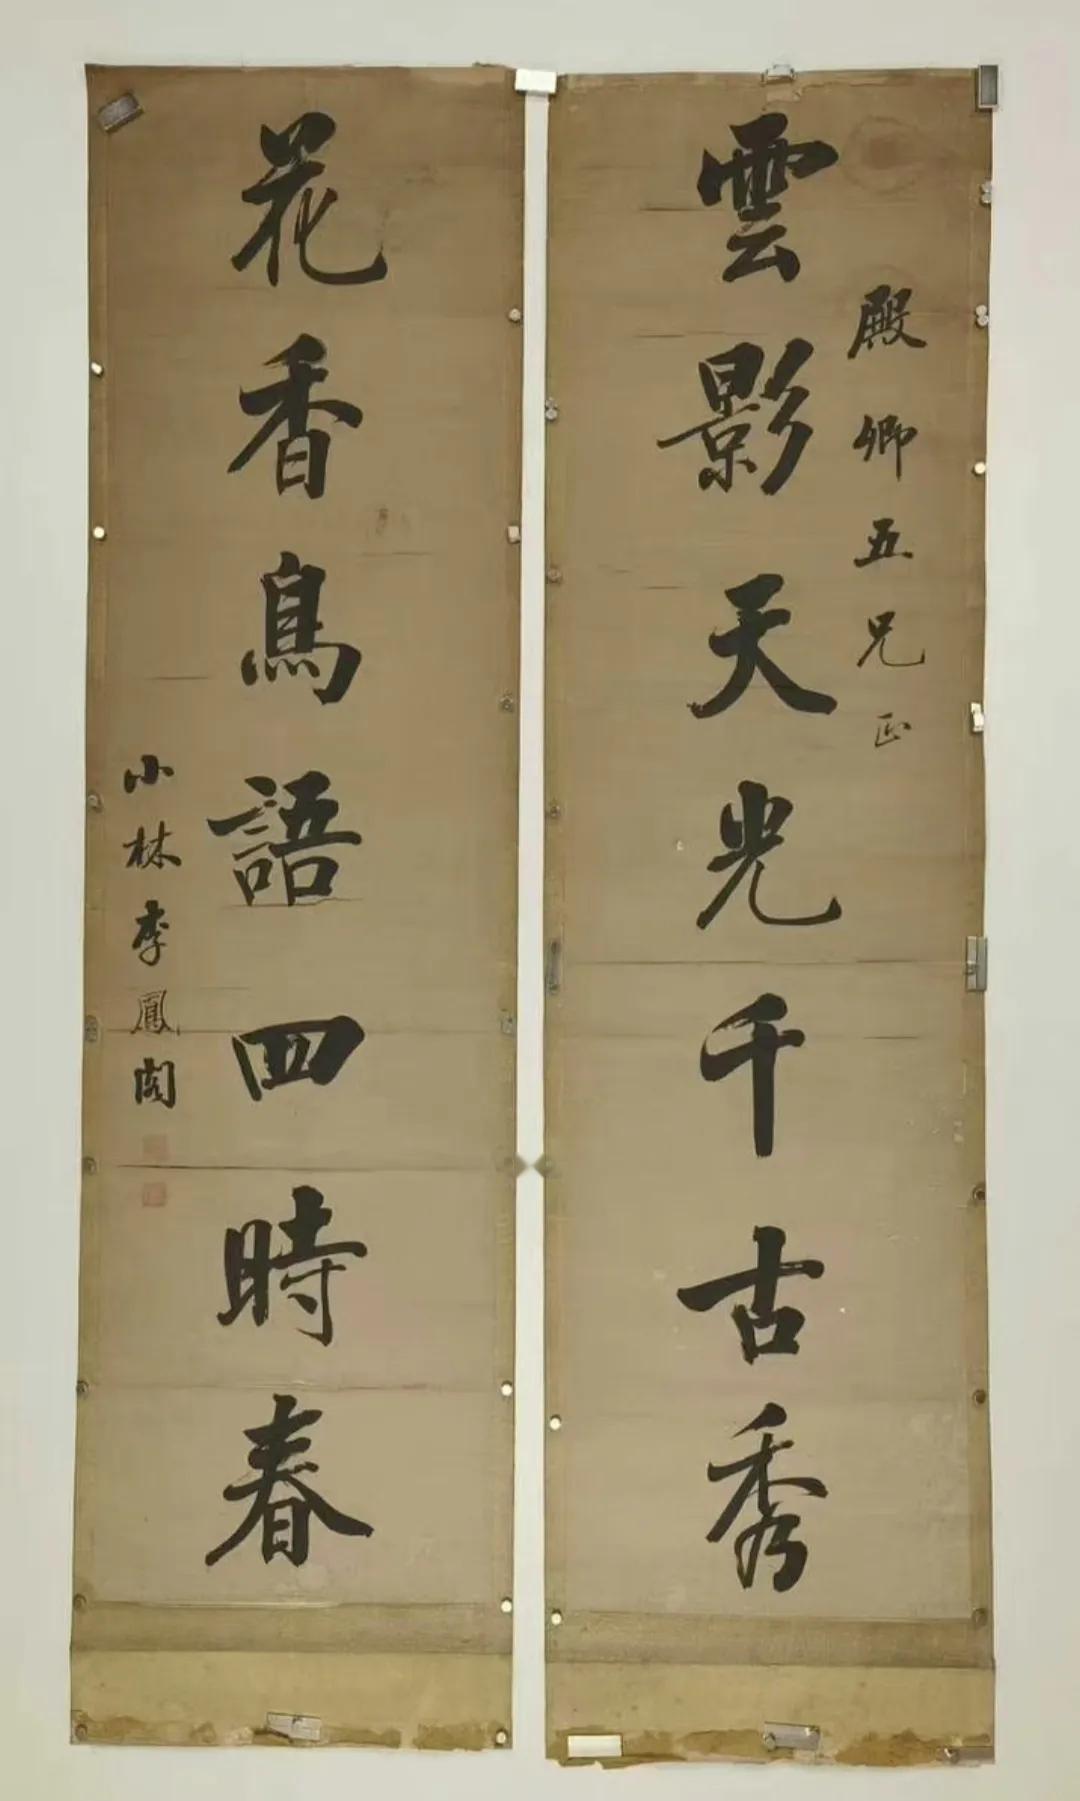 殿卿五兄正
雲影天光千古秀
花香鳥語四時春
小林李鳳閣